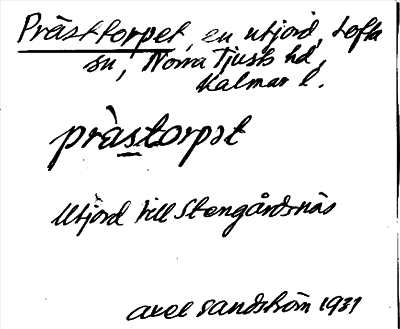 Prästtorpet, en utjord, Lofta
sn, Norra Tjusts hd,
Kalmar l.
pràstorpət
Utjord till Stengårdsnäs
Axel Sandström 1931